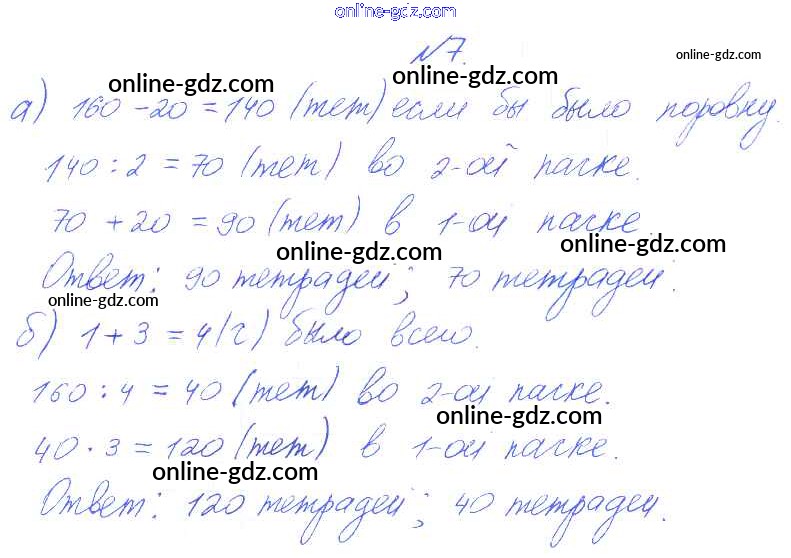 online-gdz.com
№7.
online-gdz.com
online-gdz.com
online-gdz.com
а) 160 - 20 = 140 (тет) если бы было поровну.
140 : 2 = 70 (тет) во 2-ой пачке.
70 + 20 = 90 (тет) в 1-ой пачке.
online-gdz.com
online-gdz.com
Ответ: 90 тетрадей; 70 тетрадей.
online-gdz.com
б) 1 + 3 = 4 (ч) было всего.
160 : 4 = 40 (тет) во 2-ой пачке.
online-gdz.com
40 · 3 = 120 (тет) в 1-ой пачке.
online-gdz.com
Ответ: 120 тетрадей; 40 тетрадей.